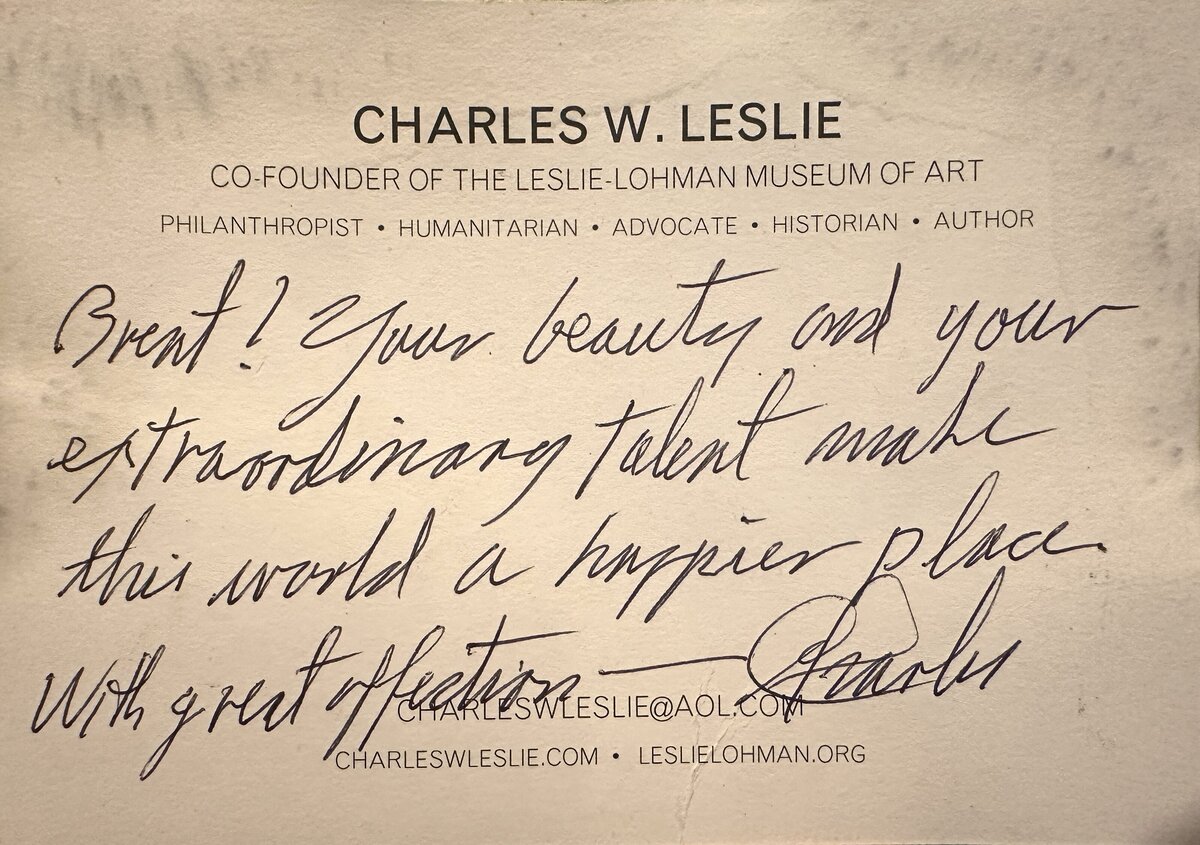 CHARLES W. LESLIE
CO-FOUNDER OF THE LESLIE-LOHMAN MUSEUM OF ART
PHILANTHROPIST • HUMANITARIAN • ADVOCATE • HISTORIAN • AUTHOR
Brent! Your beauty and your
extraordinary talent make
this world a happier place.
With great affection — Charles
CHARLESWLESLIE@AOL.COM
CHARLESWLESLIE.COM • LESLIELOHMAN.ORG